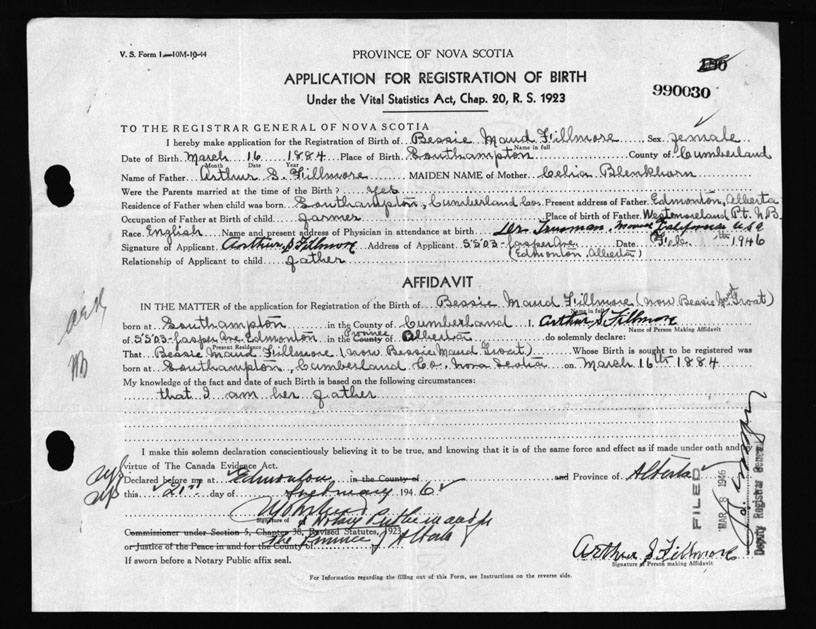 V. S. Form 1.—10M-10-44
PROVINCE OF NOVA SCOTIA
990030
APPLICATION FOR REGISTRATION OF BIRTH
Under the Vital Statistics Act, Chap. 20, R. S. 1923
TO THE REGISTRAR GENERAL OF NOVA SCOTIA
I hereby make application for the Registration of Birth of Bessie Maud Fillmore Sex female
Name in full
Date of Birth March 16 1884 Place of Birth Southampton County of Cumberland
Month Date Year
Name of Father Arthur S. Fillmore MAIDEN NAME of Mother Celia Blenkharn
Were the Parents married at the time of the Birth? yes
Residence of Father when child was born Southampton, Cumberland Co. Present address of Father Edmonton, Alberta
Occupation of Father at Birth of child farmer Place of birth of Father Westmoreland Pt. N.B.
Race English Name and present address of Physician in attendance at birth California USA
Signature of Applicant Arthur S Fillmore Address of Applicant 5503-Jasper Ave Date Feb. 1946
(Edmonton, Alberta)
Relationship of Applicant to child father
AFFIDAVIT
IN THE MATTER of the application for Registration of the Birth of Bessie Maud Fillmore (now Bessie Groat)
Name in full
born at Southampton in the County of Cumberland I, Arthur S. Fillmore
Name of Person Making Affidavit
of 5503-Jasper Ave Edmonton in the County of Province Alberta do solemnly declare:
Present Residence
That Bessie Maud Fillmore (now Bessie Maud Groat) Whose Birth is sought to be registered was
born at Southampton, Cumberland Co., Nova Scotia on March 16th 1884
My knowledge of the fact and date of such Birth is based on the following circumstances:
that I am her father
I make this solemn declaration conscientiously believing it to be true, and knowing that it is of the same force and effect as if made under oath and by
virtue of The Canada Evidence Act.
Declared before me at Edmonton in the County of and Province of Alberta
this 21st day of February 1946
Signature of
a Notary Public in and for
Commissioner under Section 5, Chapter 38, Revised Statutes, 1923
the Province of Alberta
or Justice of the Peace in and for the County of
If sworn before a Notary Public affix seal.
Arthur S Fillmore
Signature of Person making Affidavit
FILED
MAR 8 1946
Deputy Registrar General
For Information regarding the filling out of this Form, see Instructions on the reverse side.